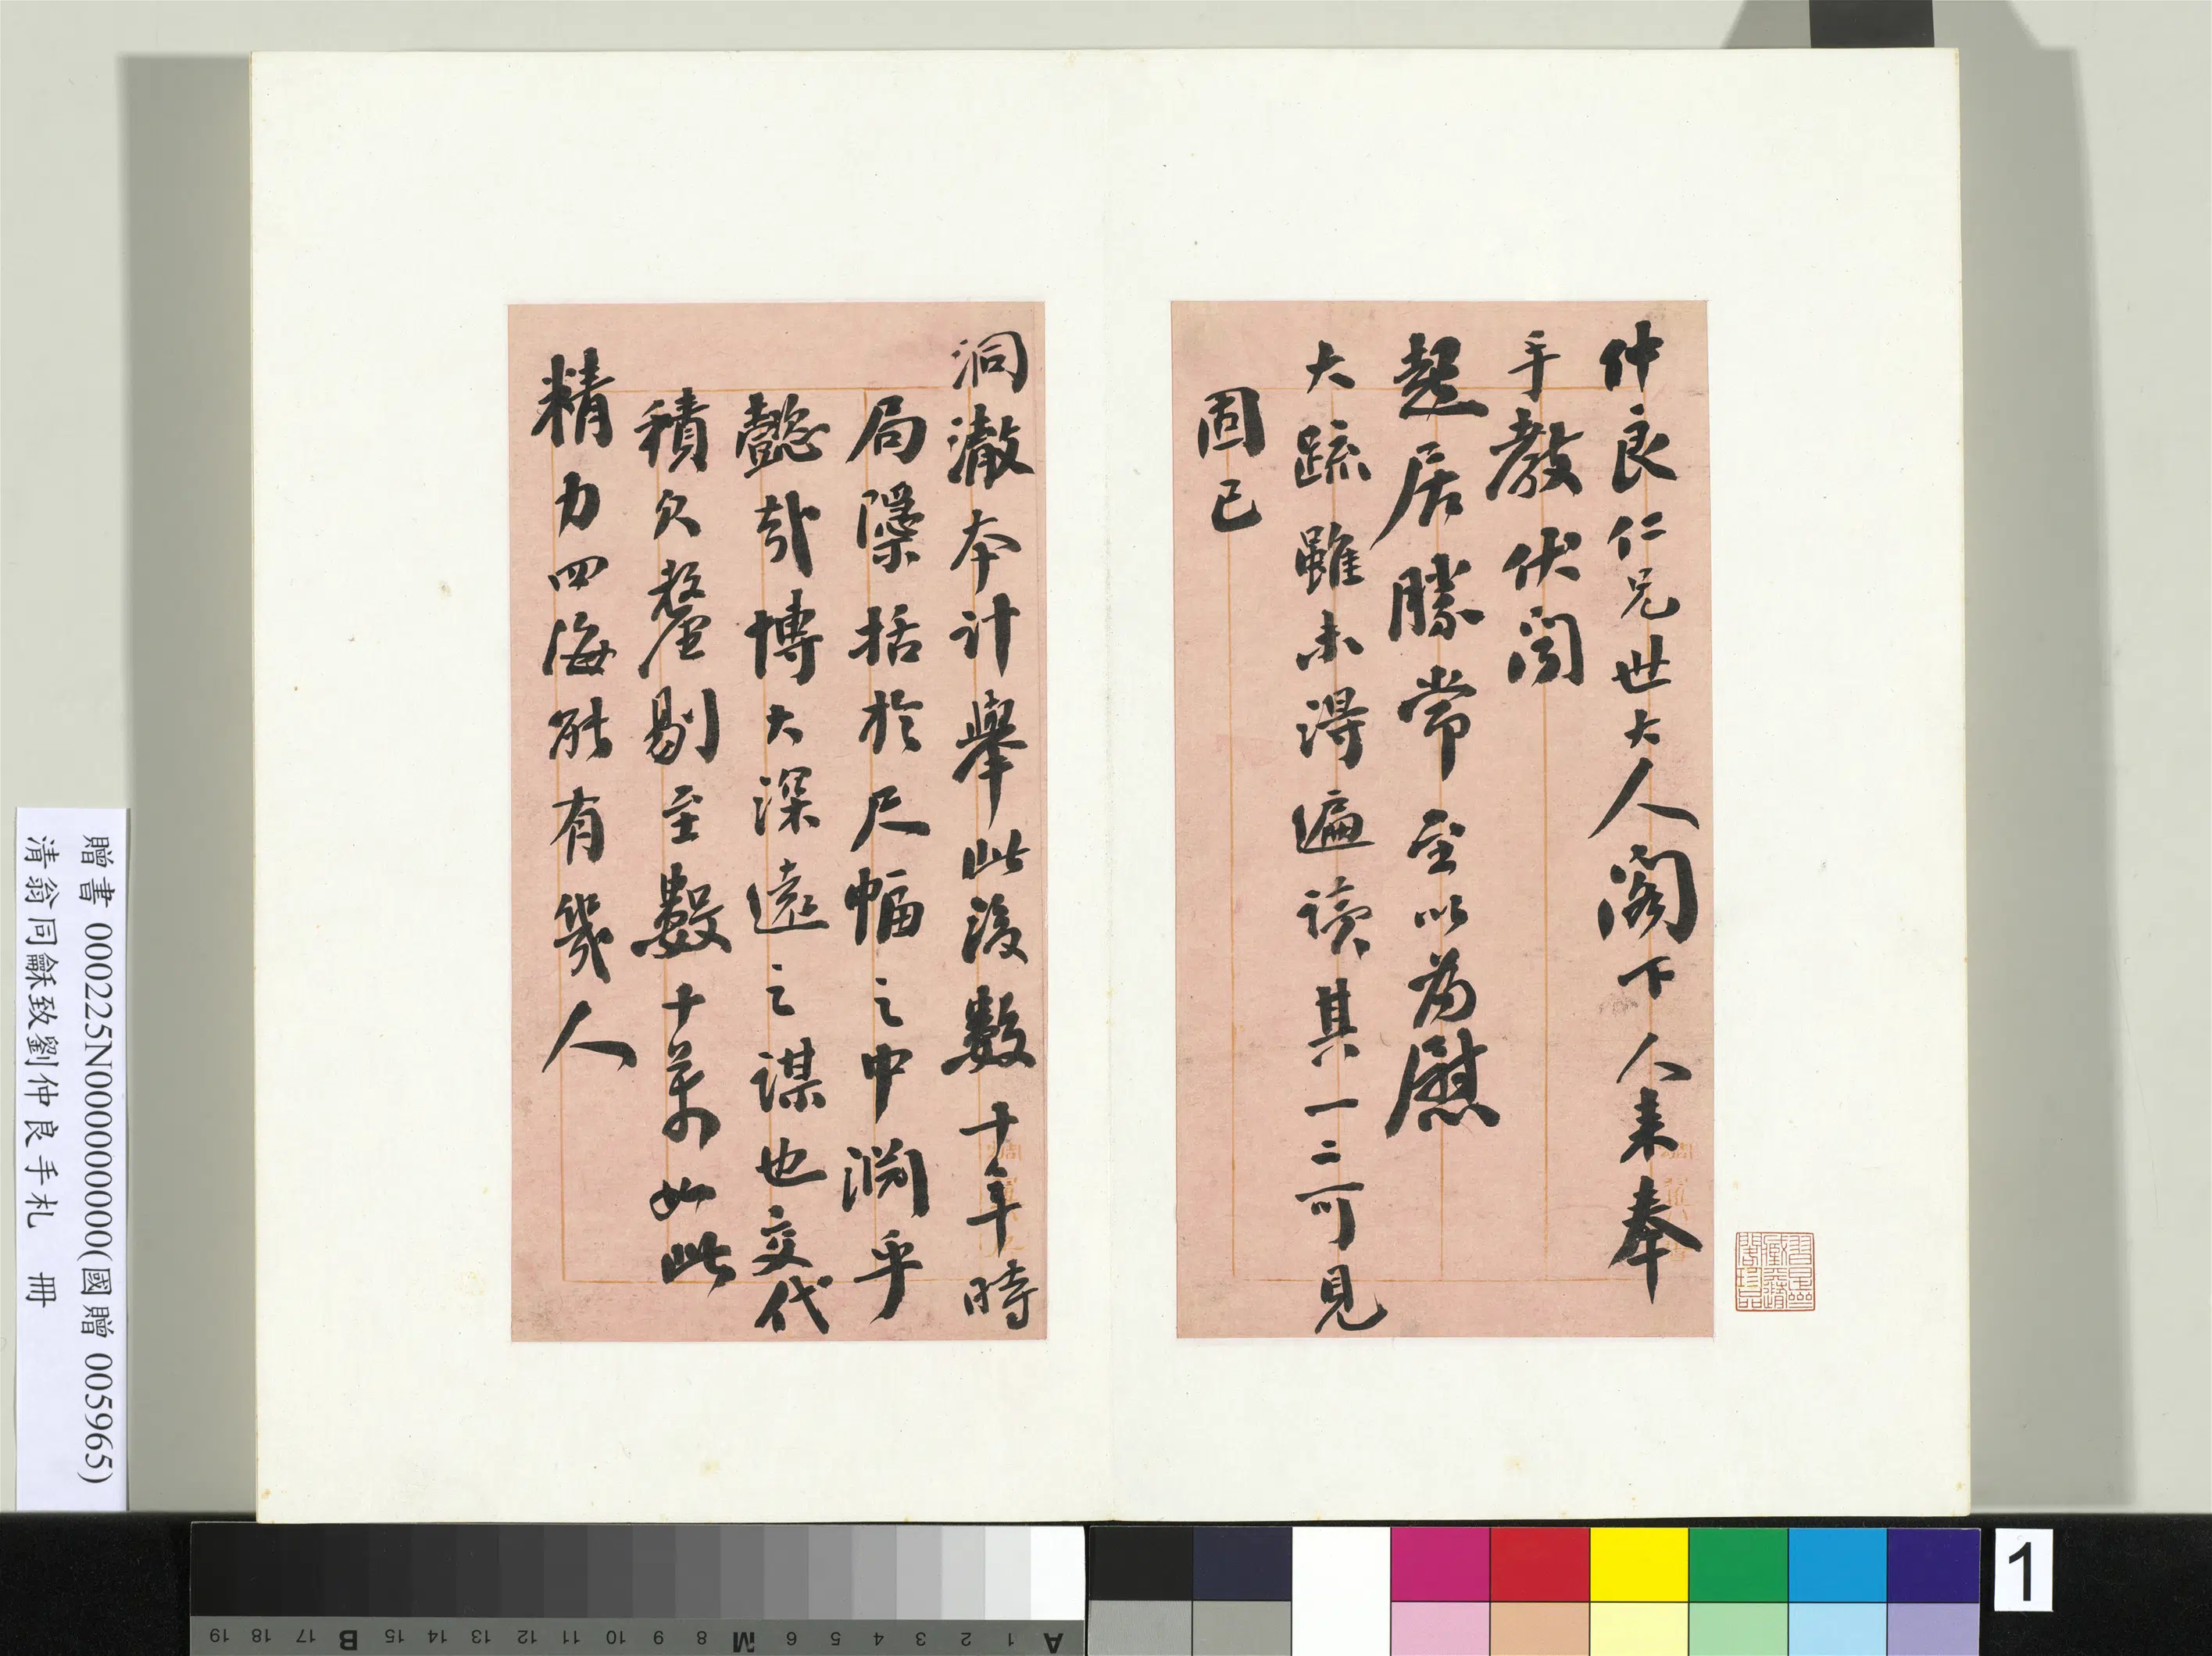 仲良仁兄世大人閣下人來奉
手教伏聞
起居勝常至以為慰
大疏雖未得遍讀其一二可見
固已
洞澈本計舉此後數十年時
局隱括於尺幅之中淵乎
懿哉博大深遠之謀也交代
積欠釐剔至數十萬如此
精力四海能有幾人
贈書 000225N000000000(國贈 005965)
清翁同龢致劉仲良手札 冊
A 1 2 3 4 5 6 M 8 9 10 11 12 13 14 15 B 17 18 19
1